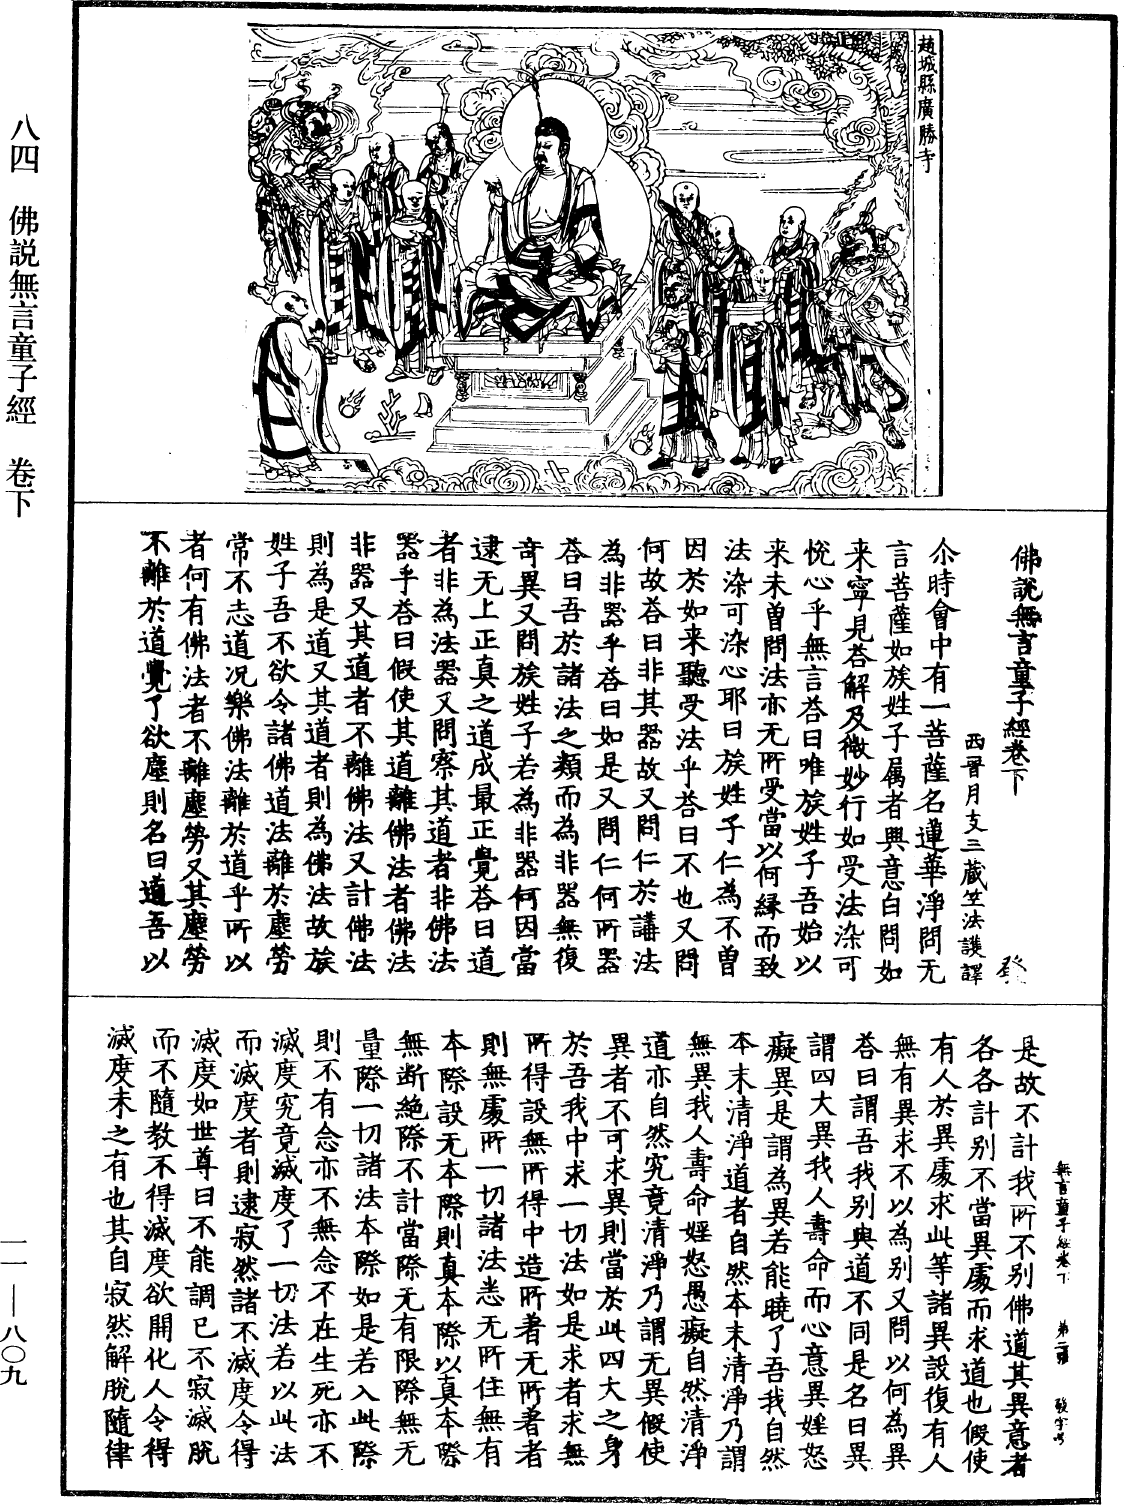 八四　佛説無言童子經　卷下
一一—八〇九
趙城縣廣勝寺
佛說無言童子經卷下
西晉月支三藏竺法護譯
尒時會中有一菩薩名蓮華淨問无
言菩薩如族姓子屬者興意白問如
来寧見荅解及微妙行如受法染可
悅心乎無言荅曰唯族姓子吾始以
来未曽問法亦无所受當以何縁而致
法染可染心耶曰族姓子仁為不曽
因於如来聽受法乎荅曰不也又問
何故荅曰非其器故又問仁於講法
為非器乎荅曰如是又問仁何所器
荅曰吾於諸法之類而為非器無復
竒異又問族姓子若為非器何因當
逮无上正真之道成最正覺荅曰道
者非為法器又問察其道者非佛法
器乎荅曰假使其道離佛法者佛法
非器又其道者不離佛法又計佛法
則為是道又其道者則為佛法故族
姓子吾不欲令諸佛道法離於塵勞
常不志道况樂佛法離於道乎所以
者何有佛法者不離塵勞又其塵勞
不離於道覺了欲塵則名曰道吾以
無言童子經卷下　第二張　發字号
是故不計我所不别佛道其異意者
各各計别不當異處而求道也假使
有人於異處求此等諸異設復有人
無有異求不以為别又問以何為異
荅曰謂吾我别與道不同是名曰異
謂四大異我人壽命而心意異婬怒
癡異是謂為異若能曉了吾我自然
本末清淨道者自然本末清淨乃謂
無異我人壽命婬怒愚癡自然清淨
道亦自然究竟清淨乃謂无異假使
異者不可求異則當於此四大之身
於吾我中求一切法如是求者求無
所得設無所得中造所著无所著者
則無處所一切諸法悉无所住無有
本際設无本際則真本際以真本際
無断絶際不計當際无有限際無无
量際一切諸法本際如是若入此際
則不有念亦不無念不在生死亦不
滅度究竟滅度了一切法若以此法
而滅度者則逮寂然諸不滅度令得
滅度如世尊曰不能調已不寂滅脫
而不隨教不得滅度欲開化人令得
滅度未之有也其自寂然解脫隨律